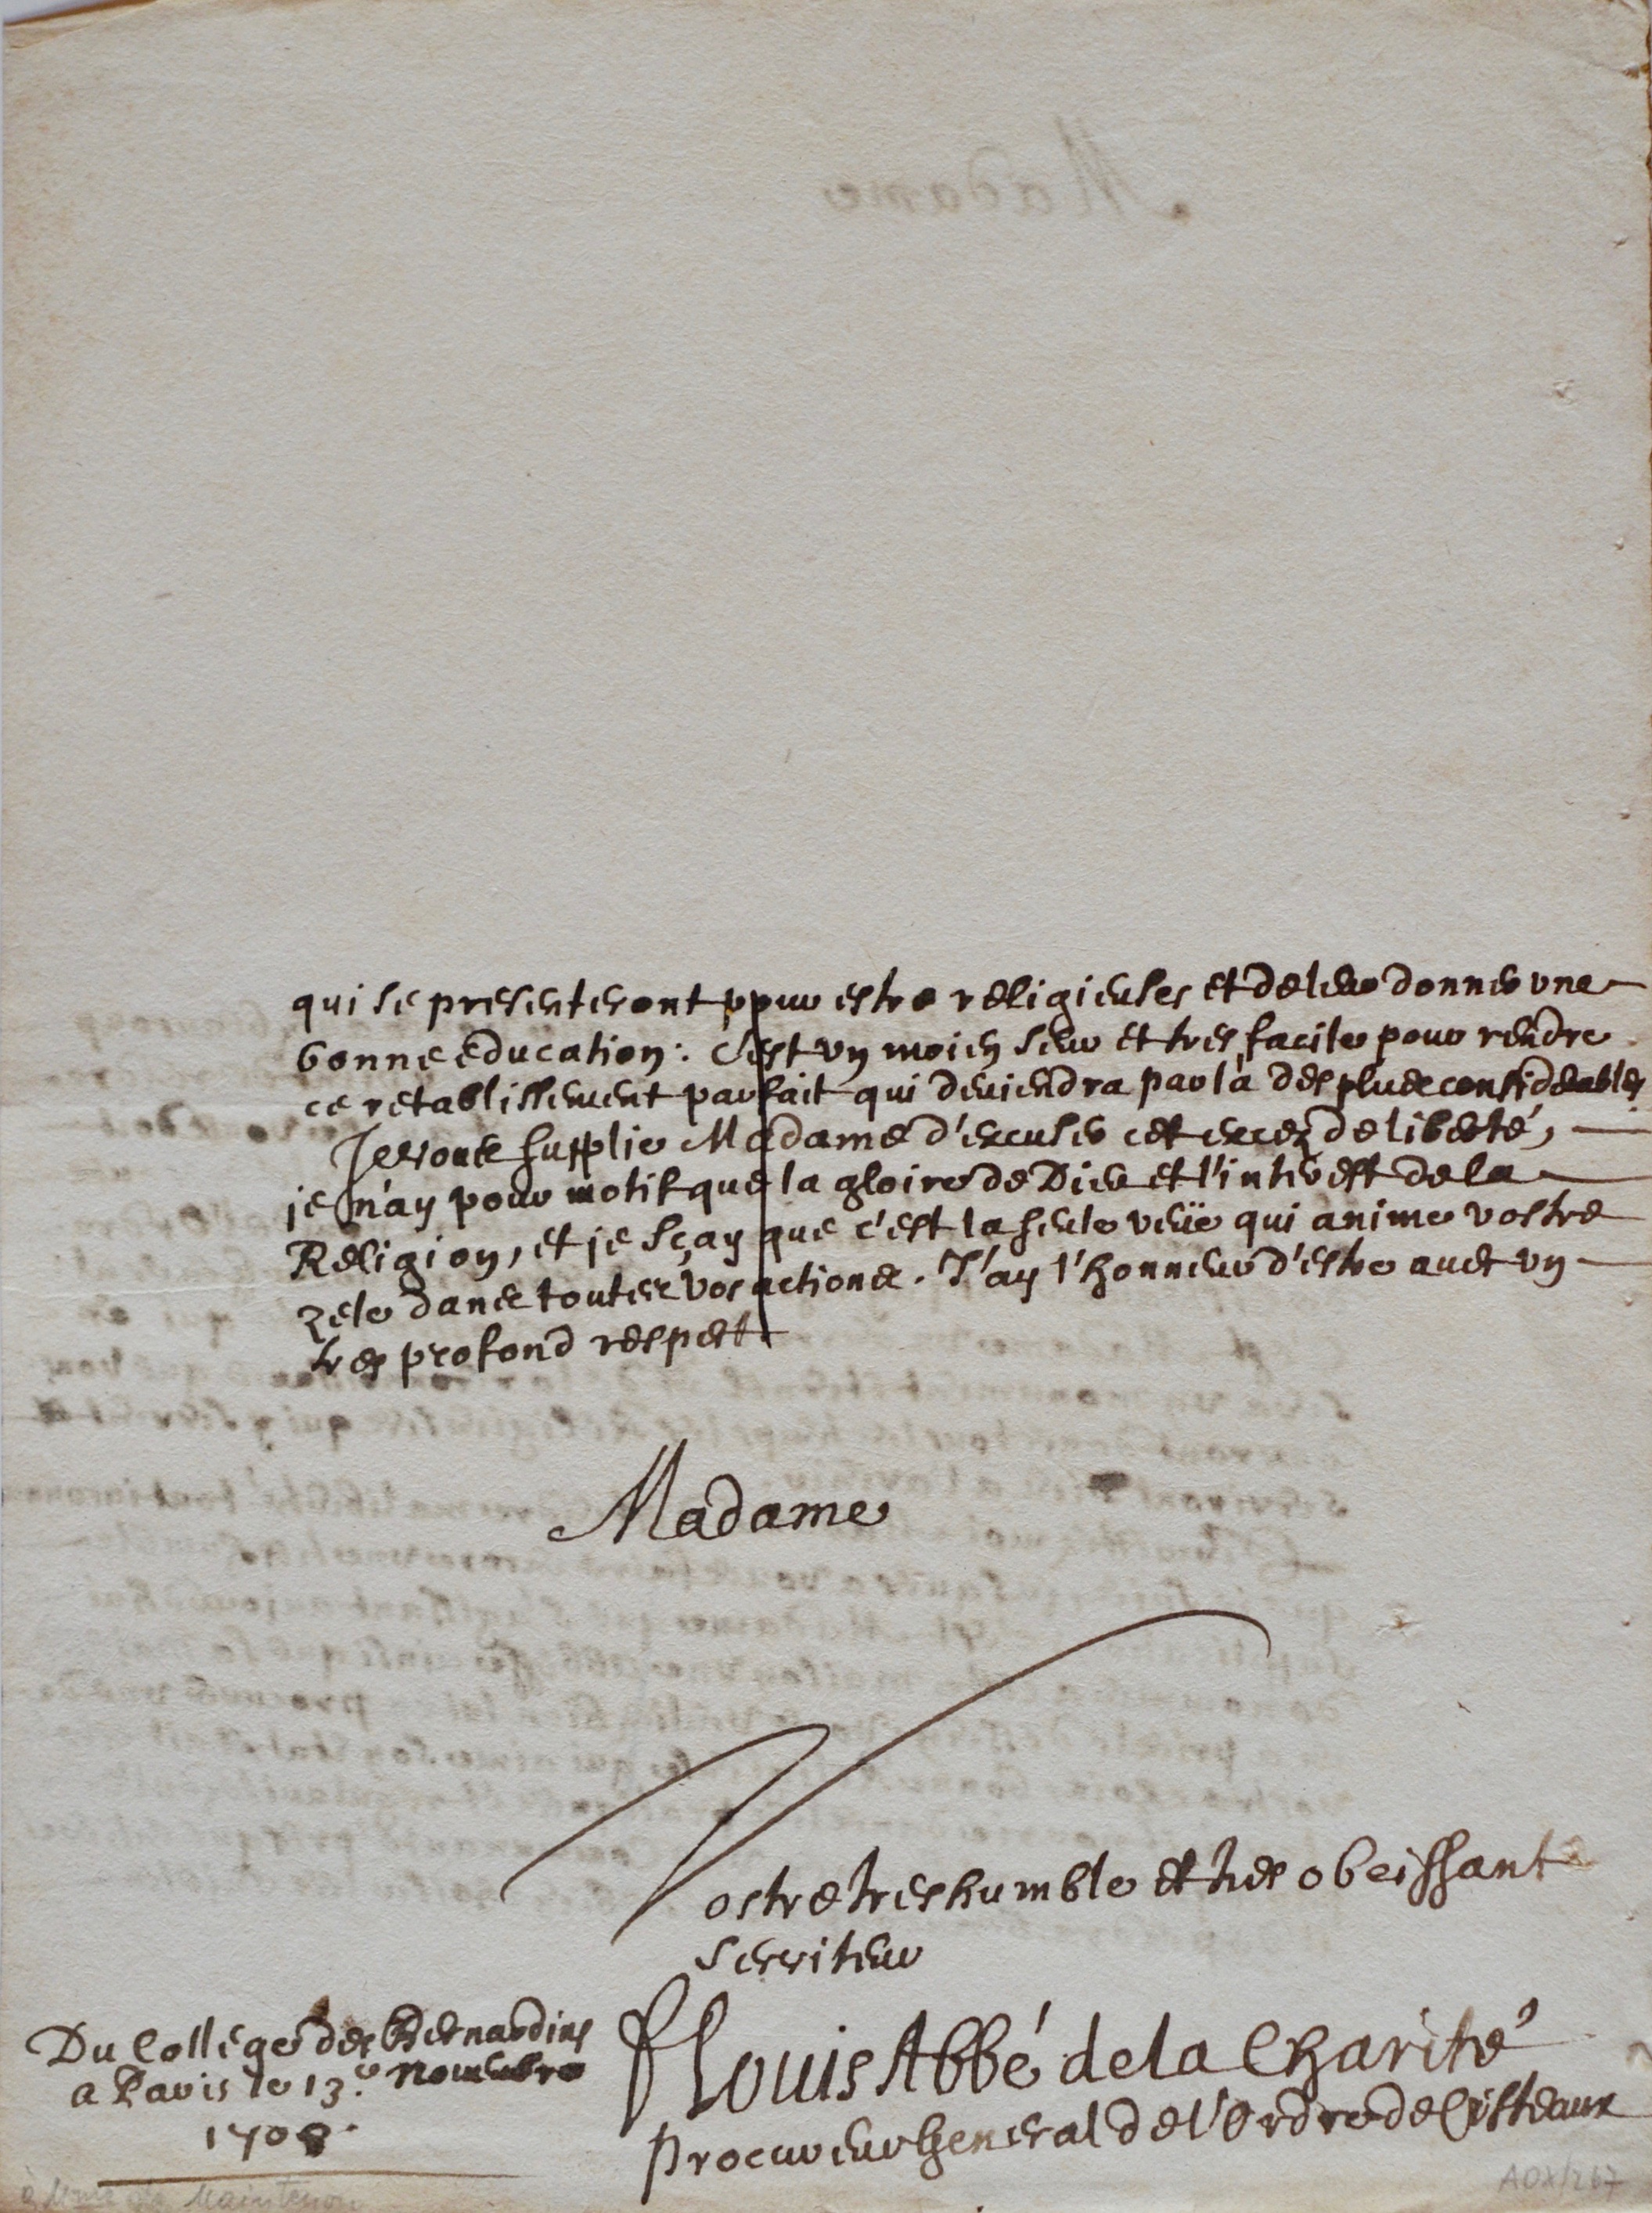 qui se presenteront ppur estre religieuses et de leur donner vne
bonne education: c'est vn moien seur et tres facile pour rendre
ce retablissement parfait qui deuiendra par là des plus considerables
Je vous supplie Madame d'excuser cet excez de liberté,
je n'ay pour motif que la gloire de Dieu et l'interest de la
Religion, et je sçay que c'est la seule veüe qui anime vostre
zele dans toutes vos actions. J'ay l'honneur d'estre auec vn
tres profond respect
Madame
Vostre tres humble et tres obeissant
serviteur
Du College des Bernardins
a Paris le 13.e Nouembre
1708.
f Louis Abbé de la Charité
Procureur General de l'Ordre de Cisteaux
à Mme de Maintenon
AOX/267